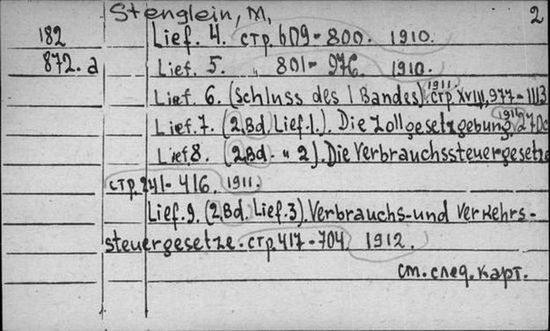 Stenglein, M. 2
182 Lief. 4. стр. 609-800. 1910.
872.a Lief. 5. " 801-976. 1910.
Lief. 6. (Schluss des I Bandes). стр. XVIII, 977-1113 1911.
Lief. 7. (2.Bd. Lief. 1.). Die Zollgesetzgebung. 1911.
Lief 8. (2.Bd. " 2). Die Verbrauchssteuergesetze
стр. 241-416. 1911.
Lief. 9. (2.Bd. Lief. 3). Verbrauchs-und Verkehrs-
steuergesetze. стр 417-704. 1912.
см. след. карт.